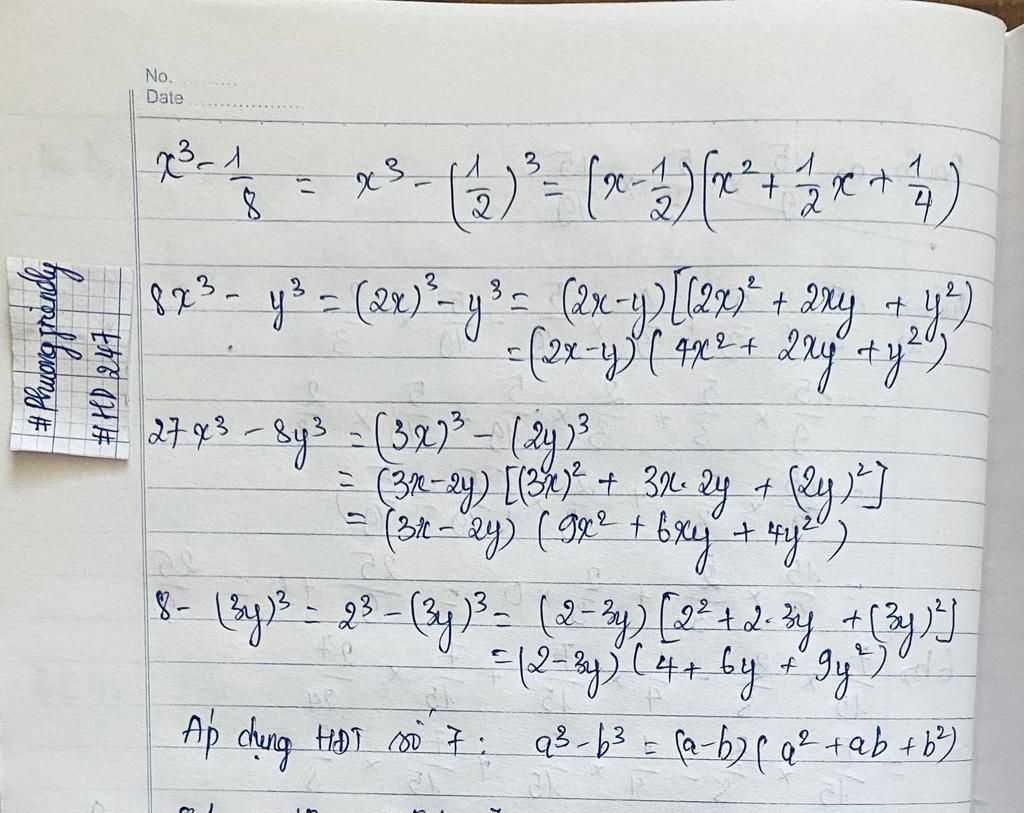 No. ..........
Date ......................
x³ - 1/8 = x³ - (1/2)³ = (x - 1/2)(x² + 1/2 x + 1/4)
8x³ - y³ = (2x)³ - y³ = (2x-y)[(2x)² + 2xy + y²)
= (2x-y)(4x² + 2xy + y²)
27x³ - 8y³ = (3x)³ - (2y)³
= (3x-2y)[(3x)² + 3x.2y + (2y)²]
= (3x-2y)(9x² + 6xy + 4y²)
8 - (3y)³ = 2³ - (3y)³ = (2-3y)[2² + 2.3y + (3y)²]
= (2-3y)(4 + 6y + 9y²)
Áp dụng HĐT số 7: a³-b³ = (a-b)(a² + ab + b²)
#Phuongfriendy
#HD 247